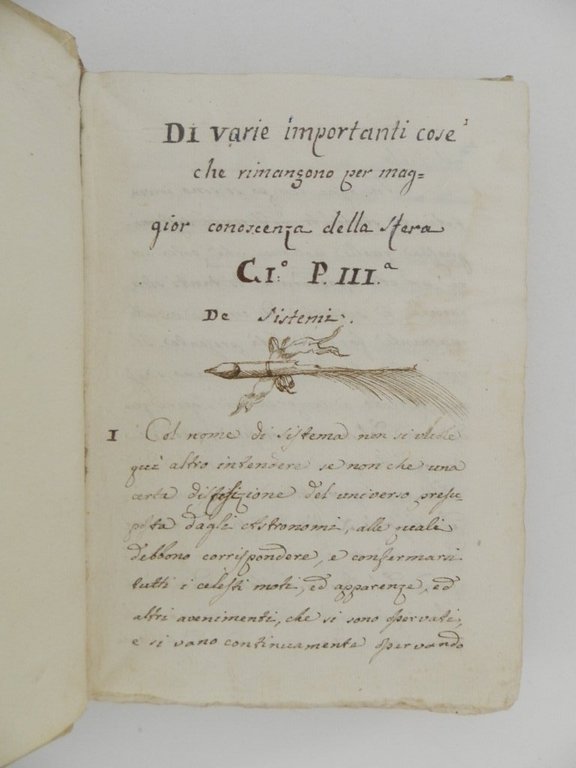 DI varie importanti cose
che rimangono per mag=
gior conoscenza della sfera
C.I.° P. III.ª
De Sistemi.
1 Col nome di sistema non si vuole
quì altro intendere se non che una
certa disposizione del universo presu
posta dagli Astronomi, alle quali
debbono corrispondere, e confermarsi
tutti i celesti moti, ed apparenze, ed
altri avenimenti, che si sono osservati,
e si vano continuamente osservando